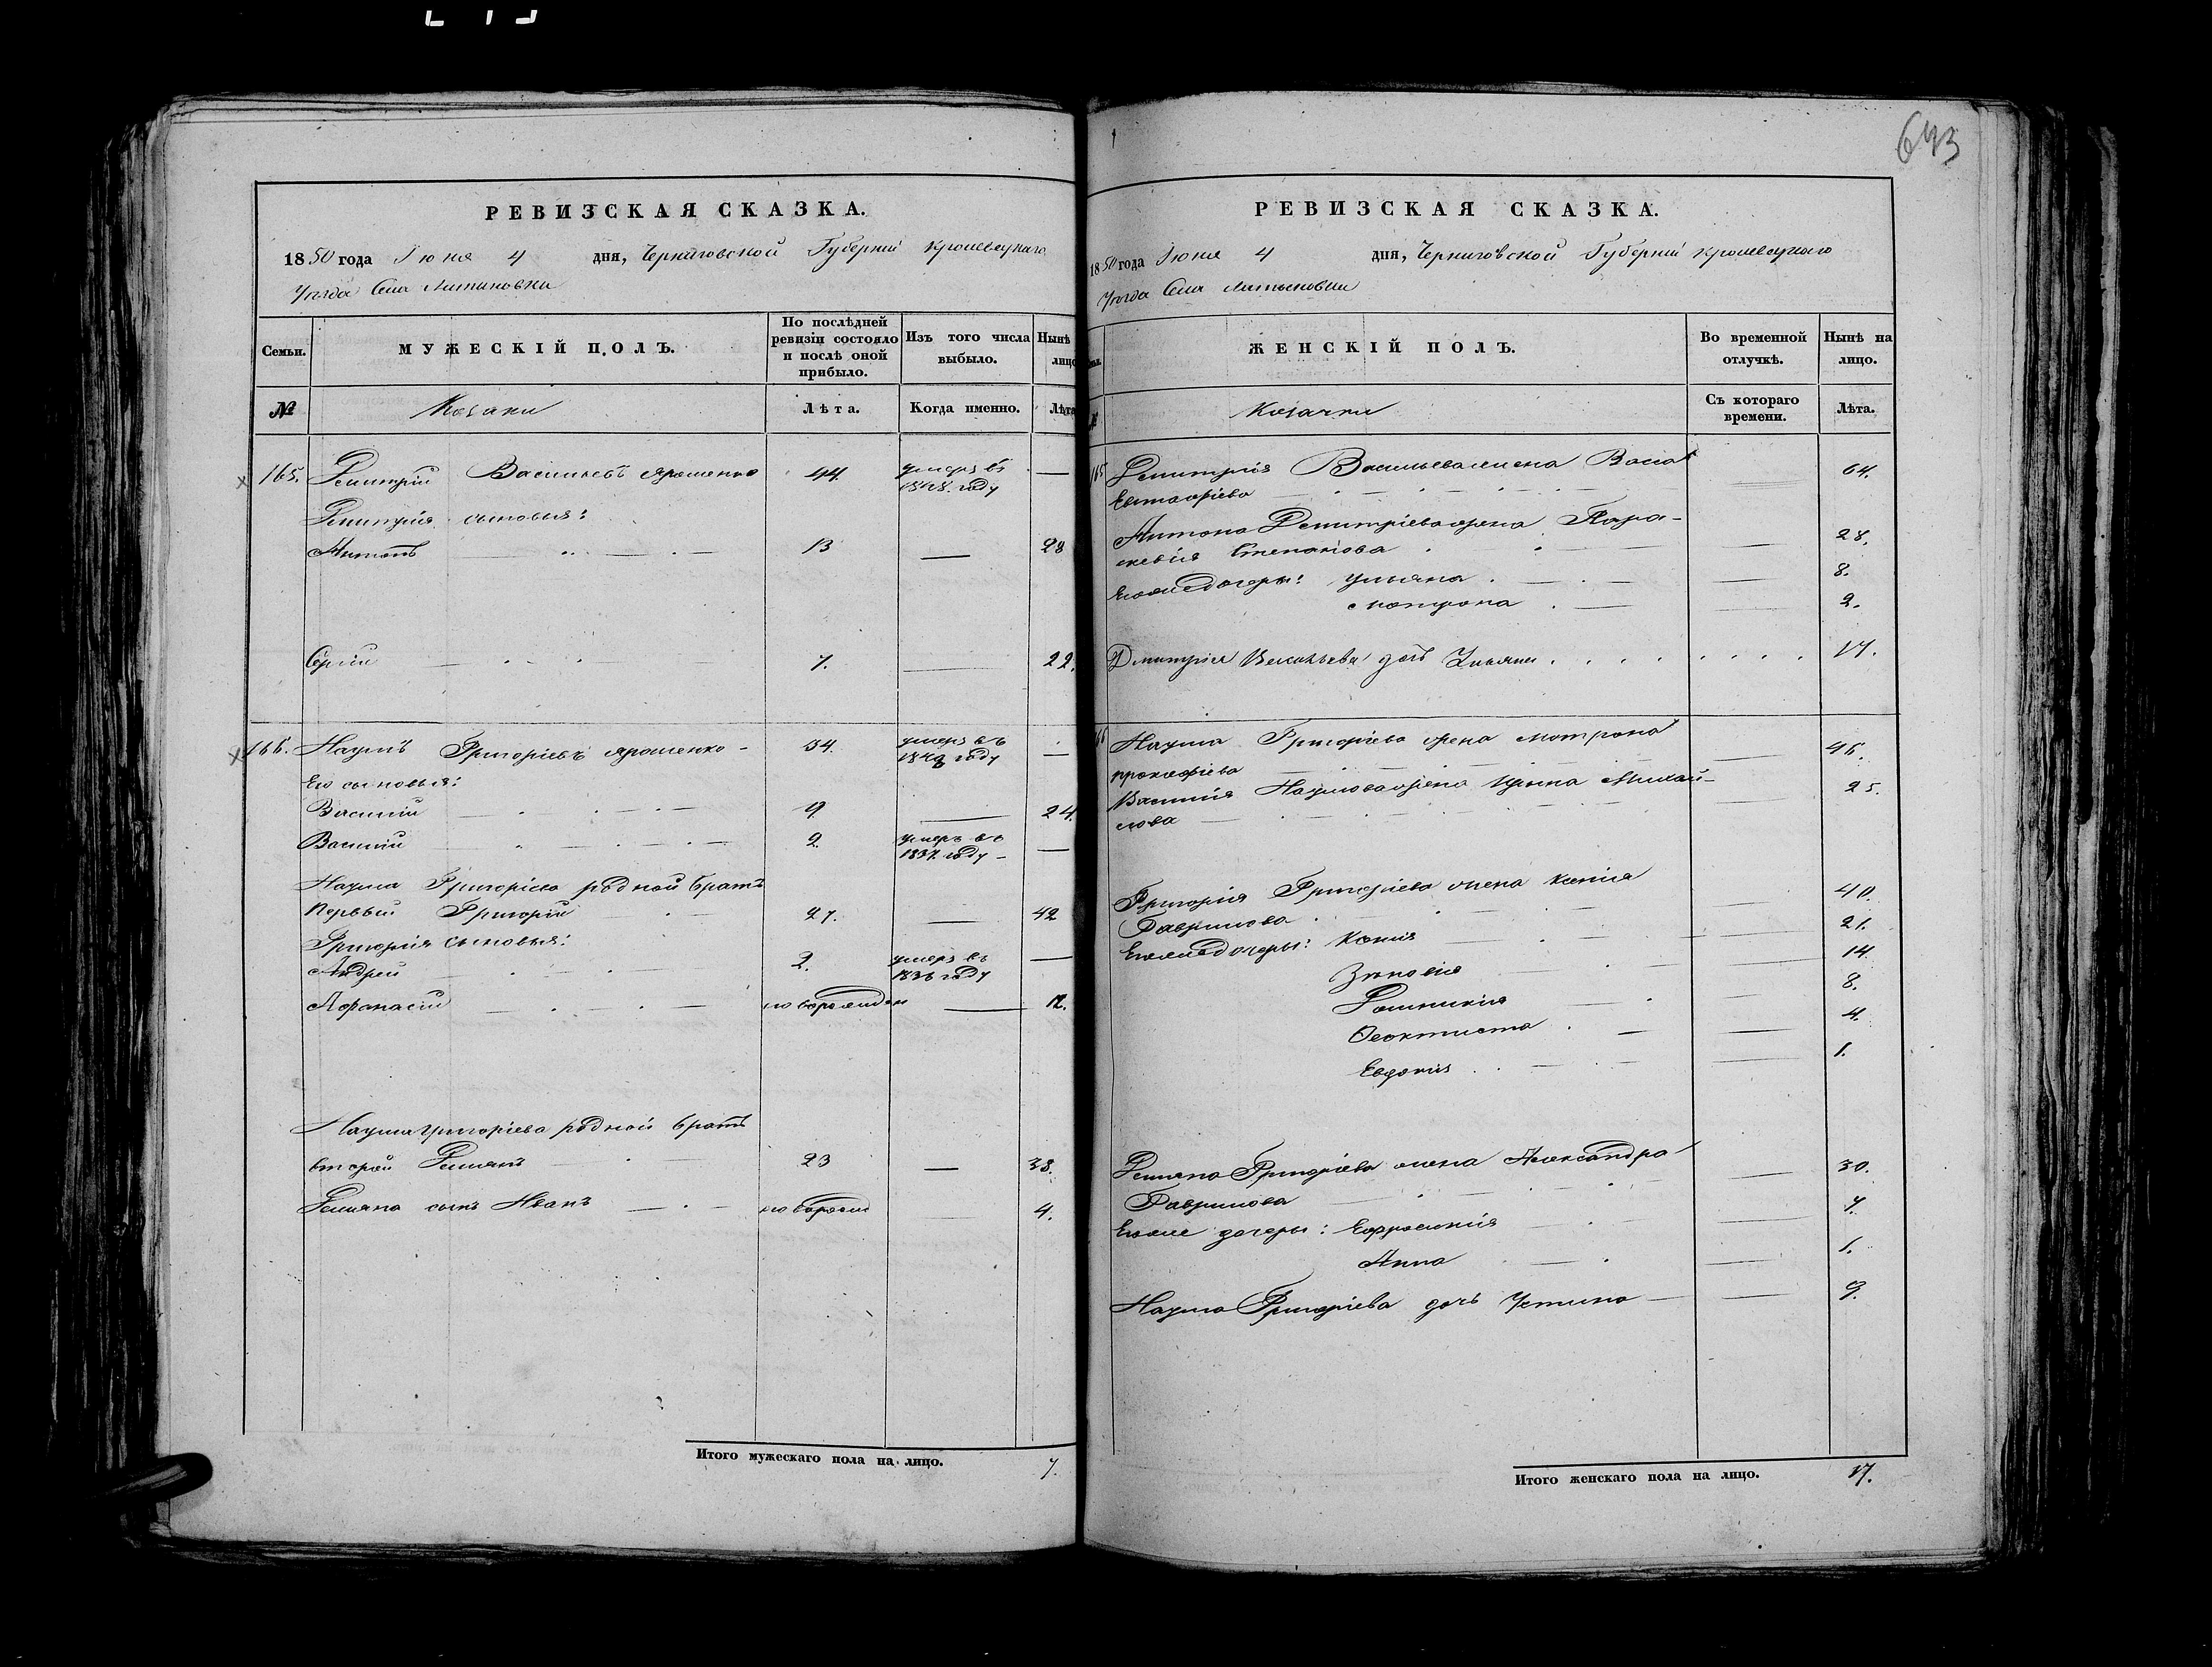 643
РЕВИЗСКАЯ СКАЗКА.
1850 года Июня 4 дня, Черниговской Губерніи Кролевецкаго
Уѣзда Села Литиновки
Семьи.
МУЖЕСКІЙ ПОЛЪ.
По послѣдней ревизіи состояло и послѣ оной прибыло.
Изъ того числа выбыло.
Нынѣ лицо
№
Козаки
Лѣта.
Когда именно.
Лѣта
165. Демитрій Васильевъ Ярошенко 44. умеръ въ 1848. году —
Демитрія сыновья:
Антонъ 13 — 28
Сергій 7. — 22.
166. Наумъ Григоріевъ Ярошенко 34. умеръ въ 1848 году —
Его сыновья:
Василій 9 — 24.
Василій 2. умеръ въ 1837. году —
Наума Григоріева родной братъ
первый Григорій 27. — 42
Григорія сыновья:
Андрей 2. умеръ въ 1836 году —
Афанасій новорожден — 12.
Наума Григоріева родной братъ
второй Демьянъ 23 — 38.
Демьяна сынъ Иванъ новорожд 4.
Итого мужескаго пола на лицо. 7.
РЕВИЗСКАЯ СКАЗКА.
1850 года Июня 4 дня, Черниговской Губерніи Кролевецкаго
Уѣзда Села Литиновки
ЖЕНСКІЙ ПОЛЪ.
Во временной отлучкѣ.
Нынѣ на лицо.
Козачки
Съ котораго времени.
Лѣта.
165 Демитрія Васильева жена Васса 64.
Евстафіева
Антона Демитріева жена Пара-
скевія Степанова — 28.
Его же дочери: Ульяна — 8.
Мотрона 2.
Дмитрія Васильева дочь Ульяна 17.
166 Наума Григоріева жена Мотрона
Прокофіева — 46.
Василія Наумова жена Ирина Михай-
лова 25.
Григорія Григоріева жена Ксенія
Гаврилова 40.
Его же дочери: Ксенія — 21.
Зиновія 14.
Домникія 8.
Феоктиста 4.
Евдокія 1.
Демьяна Григоріева жена Александра
Гаврилова — 30.
Его же дочери: Ефросинія 7.
Анна — 1.
Наума Григоріева дочь Устина — 9.
Итого женскаго пола на лицо. 17.